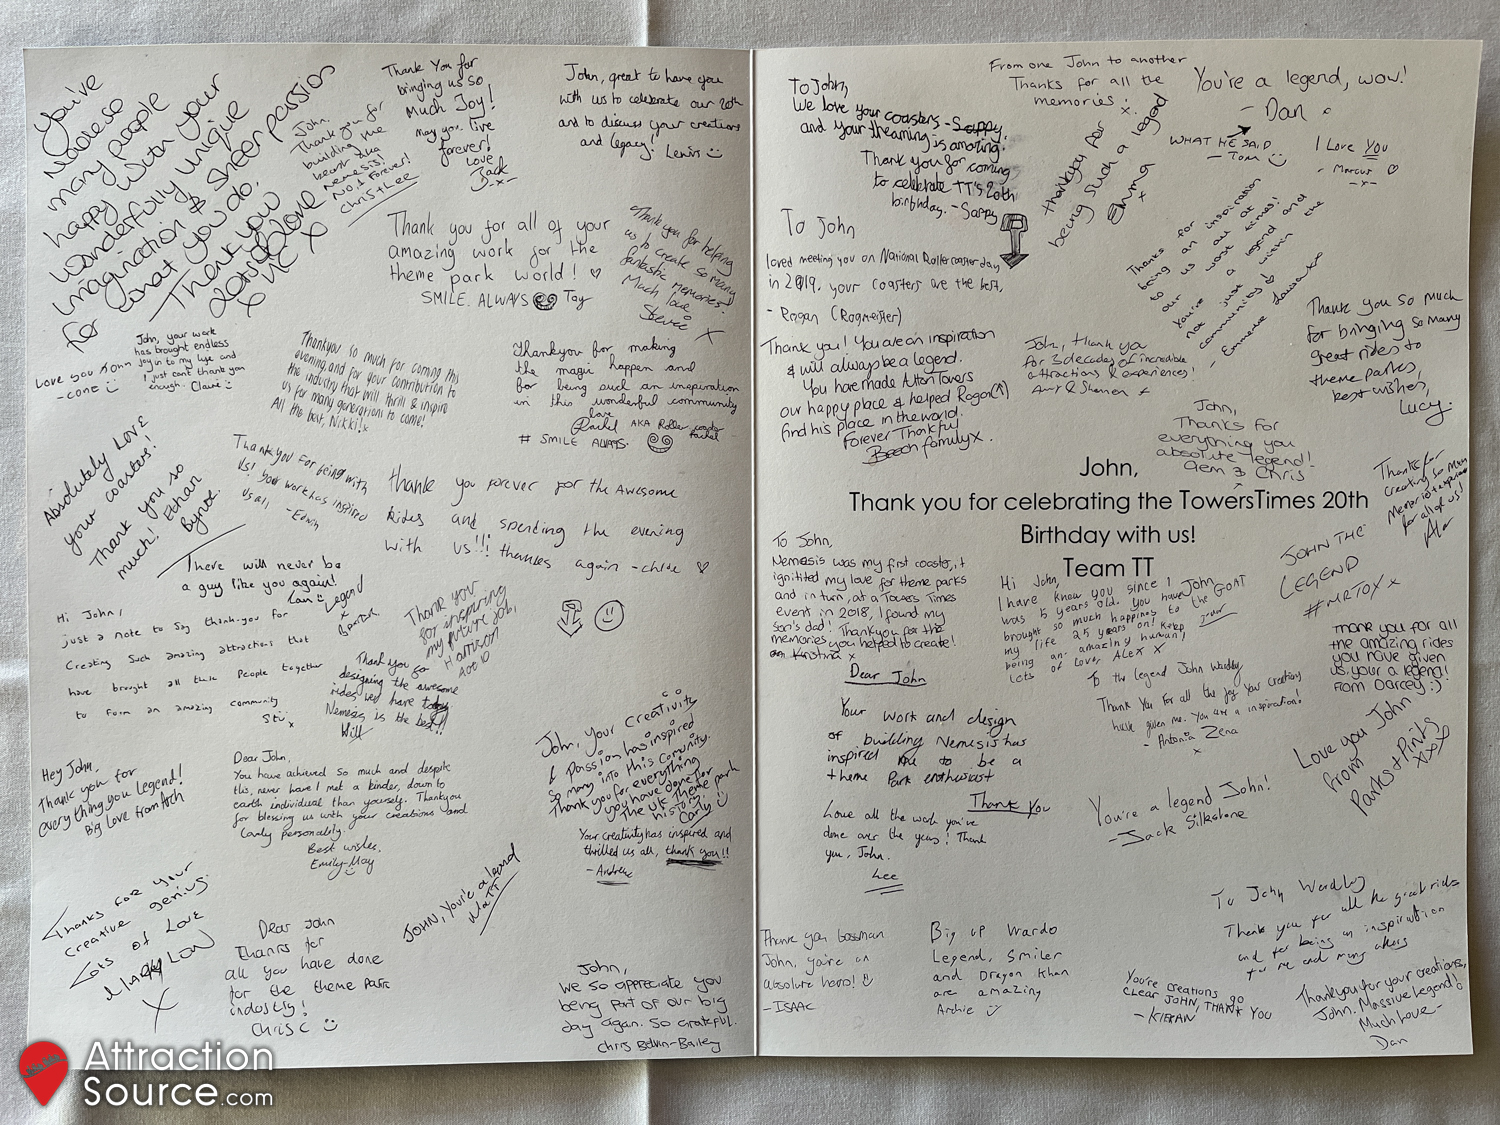 You've
made so
many people
happy with your
wonderfully unique
imagination & sheer passion
for what you do.
Thank you
John,
Thank you for
building the
beast aka
Nemesis!
No.1 Forever!
Chris + Lee
Thank You for
bringing us so
Much Joy!
May you live
forever!
Love
Jack
-x-
John, great to have you
with us to celebrate our 20th
and to discuss your creations
and legacy! Lewis
Thank you for all of your
amazing work for the
theme park world!
SMILE. ALWAYS Tay
Thank you for helping
us to create so many
fantastic memories!
Much love
Stevee
x
Love you John
- cone
John, your work
has brought endless
joy in to my life and
I just can't thank you
enough - Claire
Thankyou so much for coming this
evening, and for your contribution to
the industry that will thrill & inspire
us for many generations to come!
All the best, Nikki! x
thankyou for making
the magic happen and
for being such an inspiration
in this wonderful community
love
Rachel AKA Roller coaster
Rachel
# SMILE ALWAYS.
Absolutely Love
your coasters!
Thank you so
much! Ethan
Bynoe.
Thank you for being with
us! your work has inspired
us all, - Edwin
thank you forever for the Awesome
Rides and spending the evening
with us!!! thanks again - chloe
There will never be
a guy like you again!
Legend
x
Hi John,
just a note to say thank-you for
creating such amazing attractions that
have brought all these people together
to form an amazing community
Stu x
Thank you
for inspiring
my future job,
Harrison
Age 10
Thank you so
designing the awesome
rides we have today
Nemesis is the best!!
Will
Hey John,
Thank you for
everything you legend!
Big Love from Arch
Dear John,
You have achieved so much and despite
this, never have I met a kinder, down to
earth individual than yourself. Thankyou
for blessing us with your creations and
lovely personality.
Best wishes,
Emily-May
John, your creativity
& passion has inspired
so many into this comunity.
Thank you for everything
you have done for
the UK theme park
history.
Carly
Your creativity has inspired and
thrilled us all, thank you!!
- Andrew
JOHN, you're a legend
Matt
Thanks for your
creative genius.
Lots of Love
x
Dear John
Thanks for
all you have done
for the theme park
industry!
Chris C
John,
we so appreciate you
being part of our big
day again. So grateful.
Chris Belvin-Bailey
To John,
We love your coasters - Sappy.
and your theaming is amazing!
Thank you for coming
to celebrate TT's 20th
birthday. - Sappy
From one John to another
Thanks for all the
memories :
x
thankyou for
being such a legend
Emma
x
You're a legend, wow!
- Dan x
WHAT HE SAID
- Tom
I Love You
- Marcus
-x-
To John
loved meeting you on National Rollercoaster day
in 2019. your coasters are the best,
- Rogan (Rogmeister)
Thanks for
being an inspiration
to us all at
our worst times!
You're a legend and
not just within the
community
- Emmanuel
Thank you! You are an inspiration
& will always be a legend.
You have made Alton Towers
our happy place & helped Rogan(↑)
find his place in the world.
Forever Thankful
Beech family x.
John, thank you
for 3 decades of incredible
attractions & experiences!
Amy & Shannen x
Thank you so much
for bringing so many
great rides to
theme parks,
best wishes,
Lucy.
John,
Thanks for
everything you
absolute legend!
Gem & Chris
x
John,
Thank you for celebrating the TowersTimes 20th
Birthday with us!
Team TT
To John,
Nemesis was my first coaster, it
ignitited my love for theme parks
and in turn, at a Towers Times
event in 2018, I found my
son's dad! Thankyou for the
memories you helped to create!
Kristina x
Hi John,
I have know you since I
was 5 years old. You have
brought so much happines to
my life 25 years on! Keep
being an amazing human!
Lots of Love, Alex x
John
the GOAT
Thanks for
creating so many
for all of us!
JOHN THE
LEGEND
#MRTOY x
Thank you for all
the amazing rides
you have given
us, your a legend!
From Darcey :)
Dear John
Your work and design
of building Nemesis has
inspired me to be a
theme Park enthusiast
Thank You
To the legend John Wardley
Thank You for all the joy your creations
have given me. You are a inspiration!
- Antonia Zena
x
Love you John
from
Parks + Pints
xxx
You're a legend John!
- Jack Silkstone
Love all the work you've
done over the years! Thank
you, John.
Lee
Thank you bossman
John, you're an
absolute hero!
- ISAAC
Big up Wardo
Legend, Smiler
and Dragon Khan
are amazing
Archie
To John Wardley
Thank you for all the great rides
and for being an inspiration
for me and many others
You're creations go
CLEAR JOHN, THANK YOU
- KIERAN
Thankyou for your creations,
John. Massive Legend!
Much Love -
Dan
Attraction
Source.com